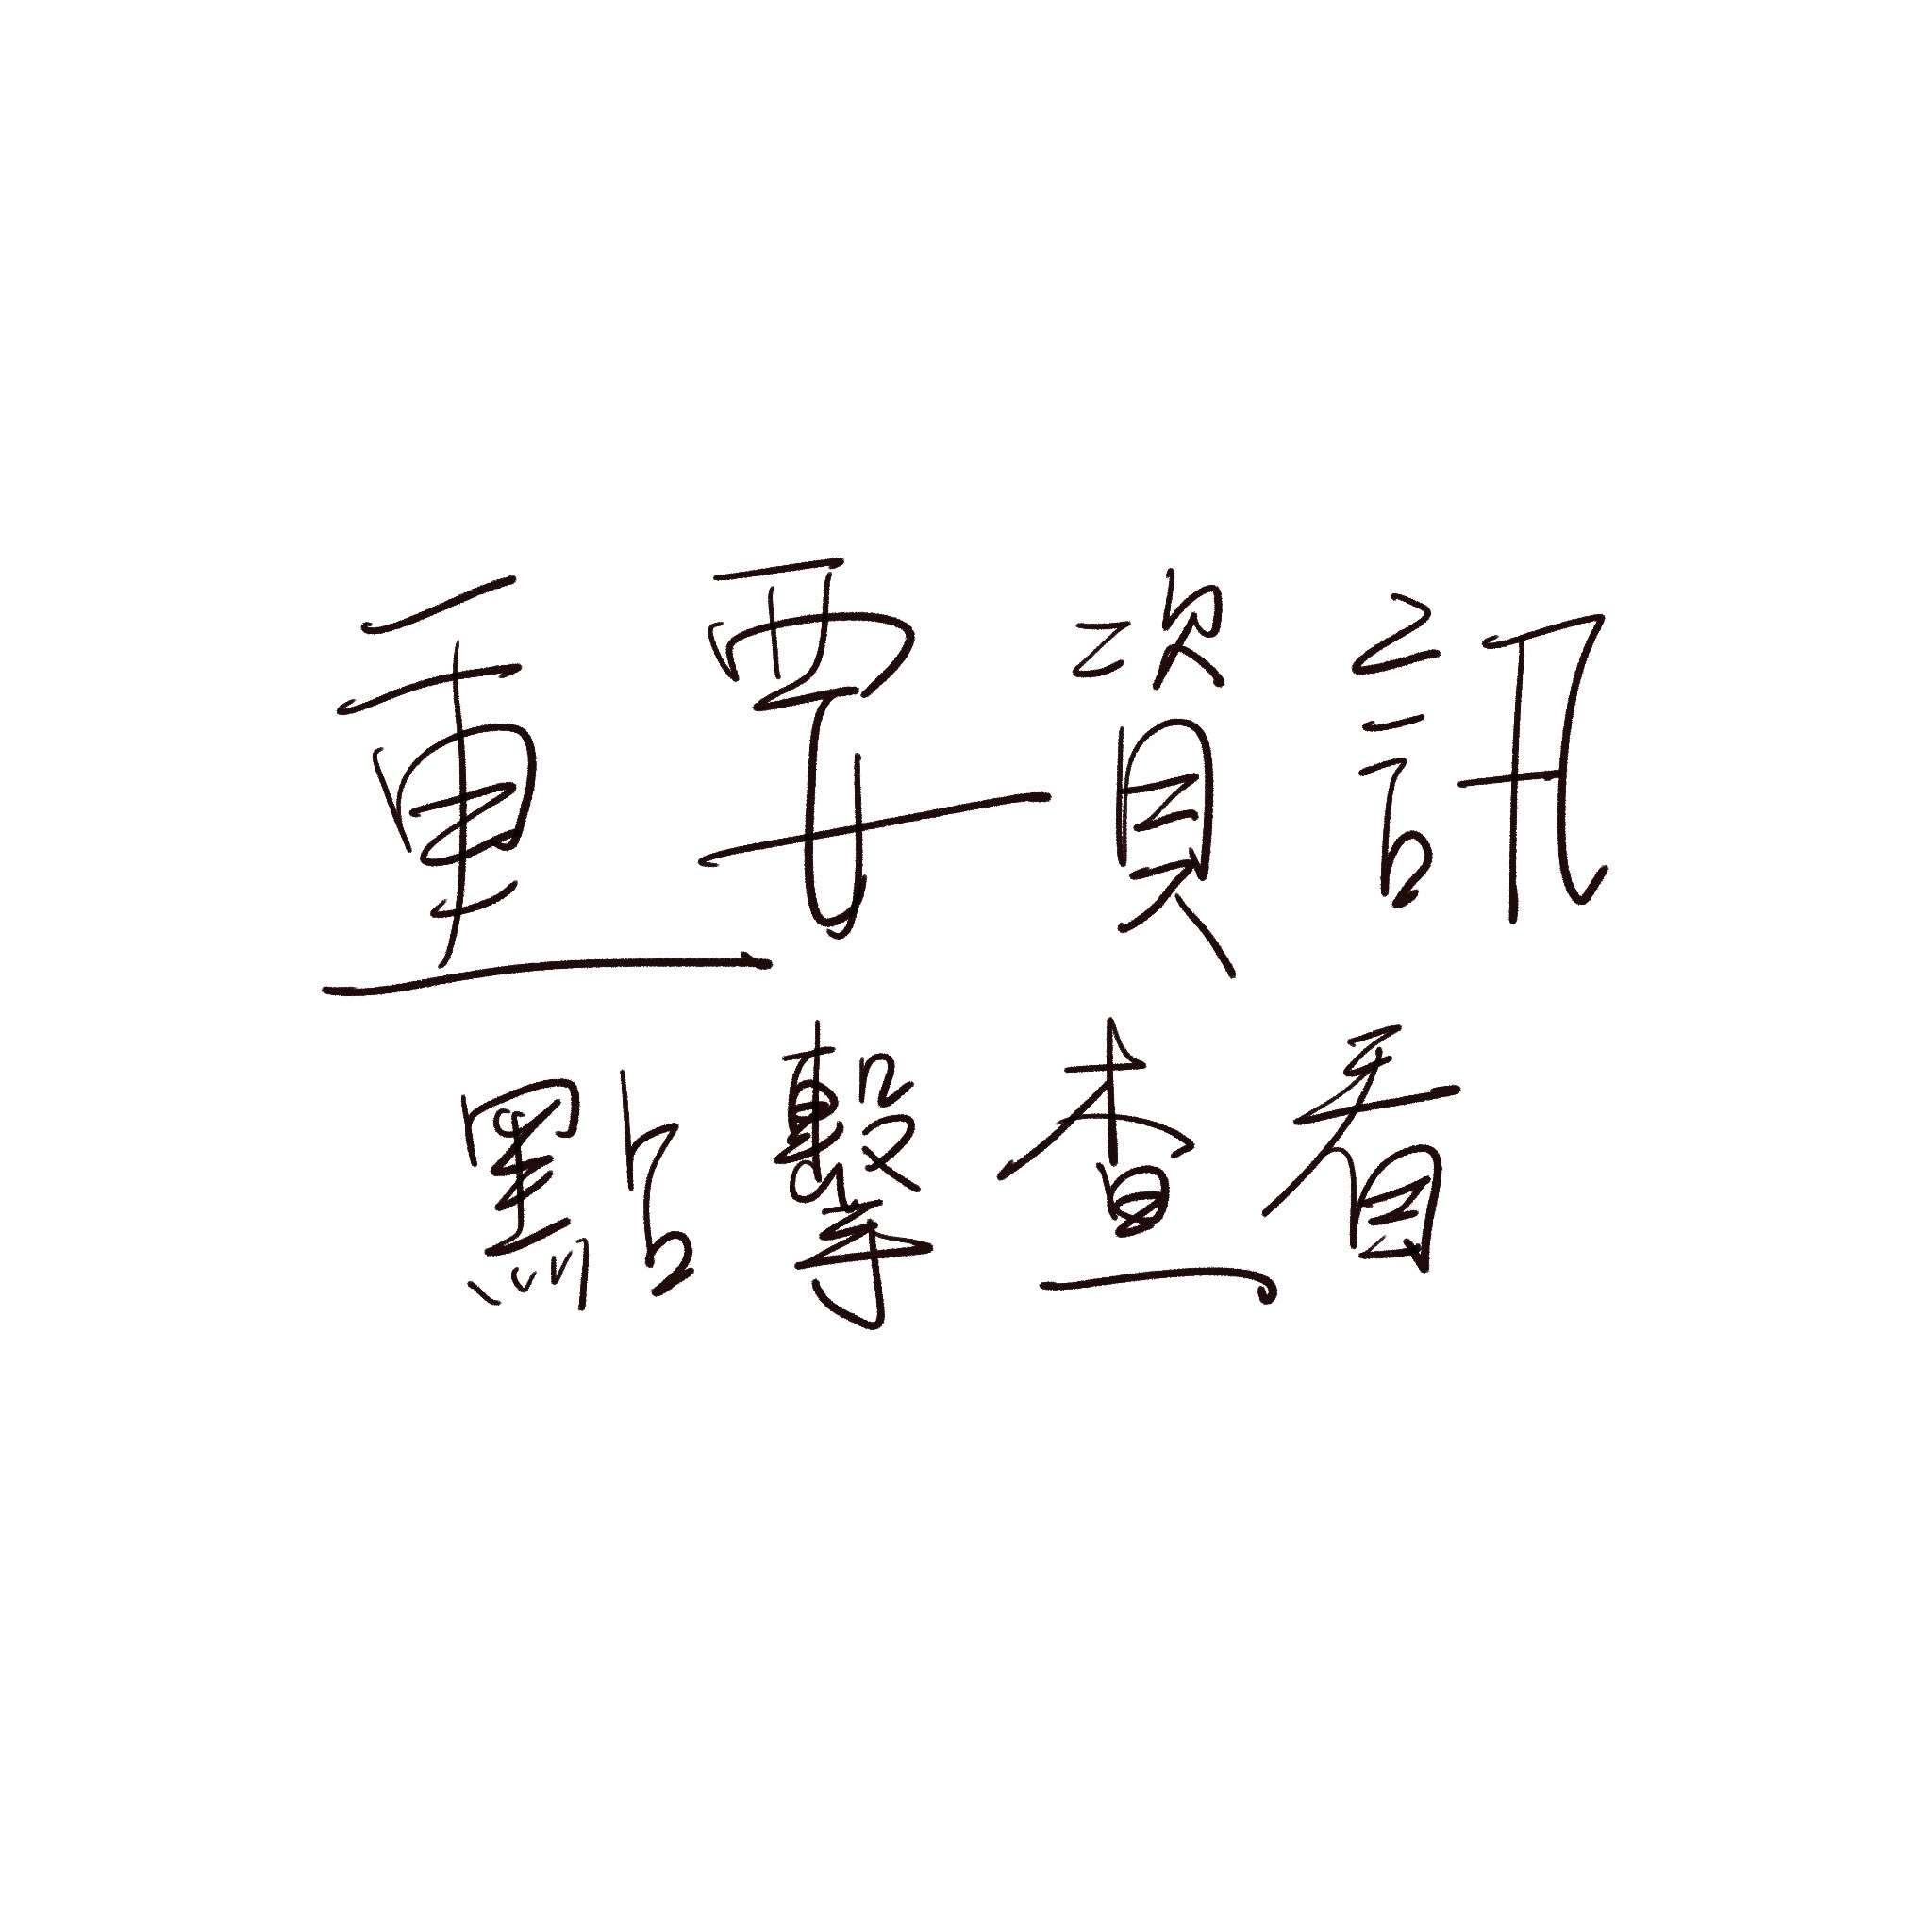 重要資訊
點擊查看